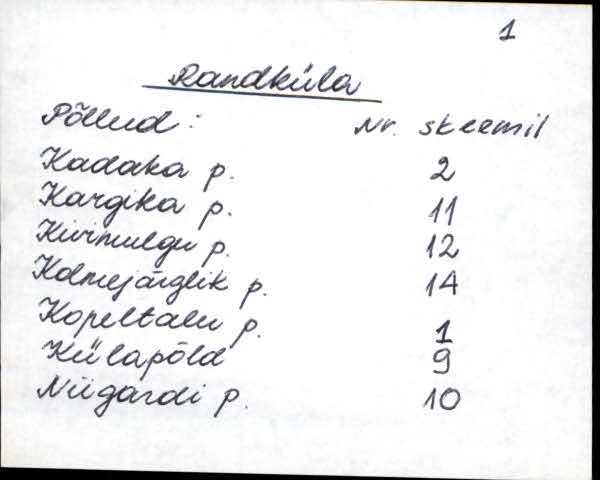 1
Randküla
Põllud: Nr. skeemil
Kadaka p. 2
Kargika p. 11
Kivimulgu p. 12
Kolmejärglik p. 14
Kopeltalu p. 1
Külapõld 9
Niigardi p. 10